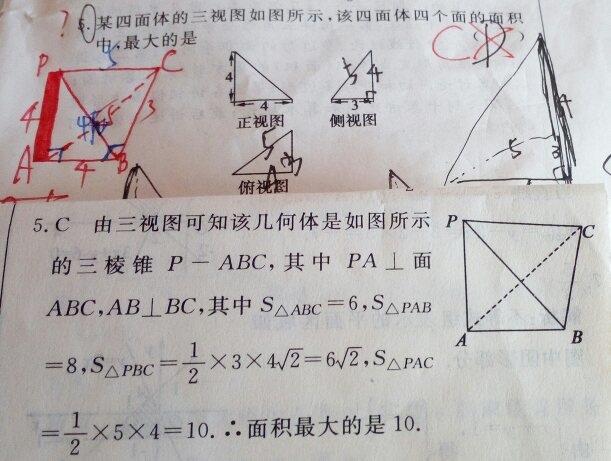 ?
5. 某四面体的三视图如图所示,该四面体四个面的面积
中,最大的是
C D
P 5 C
4 5 3
A 4 B
4
4
正视图
5 4
3
侧视图
5 3
4
俯视图
4
5 3
5. C 由三视图可知该几何体是如图所示
的三棱锥 P-ABC,其中 PA⊥面
ABC,AB⊥BC,其中 S△ABC=6,S△PAB
=8,S△PBC=1/2×3×4√2=6√2,S△PAC
=1/2×5×4=10.∴面积最大的是 10.
P C
A B